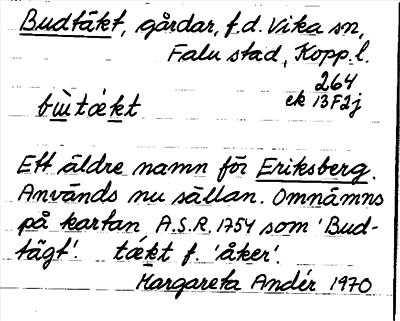 Budtäkt, gårdar, f.d. Vika sn,
Falu stad, Kopp. l.
264
ek 13F2j
bùtækt
Ett äldre namn för Eriksberg.
Används nu sällan. Omnämns
på kartan A.S.R. 1754 som 'Bud-
tägt'. tækt f. 'åker'.
Margareta Andér 1970